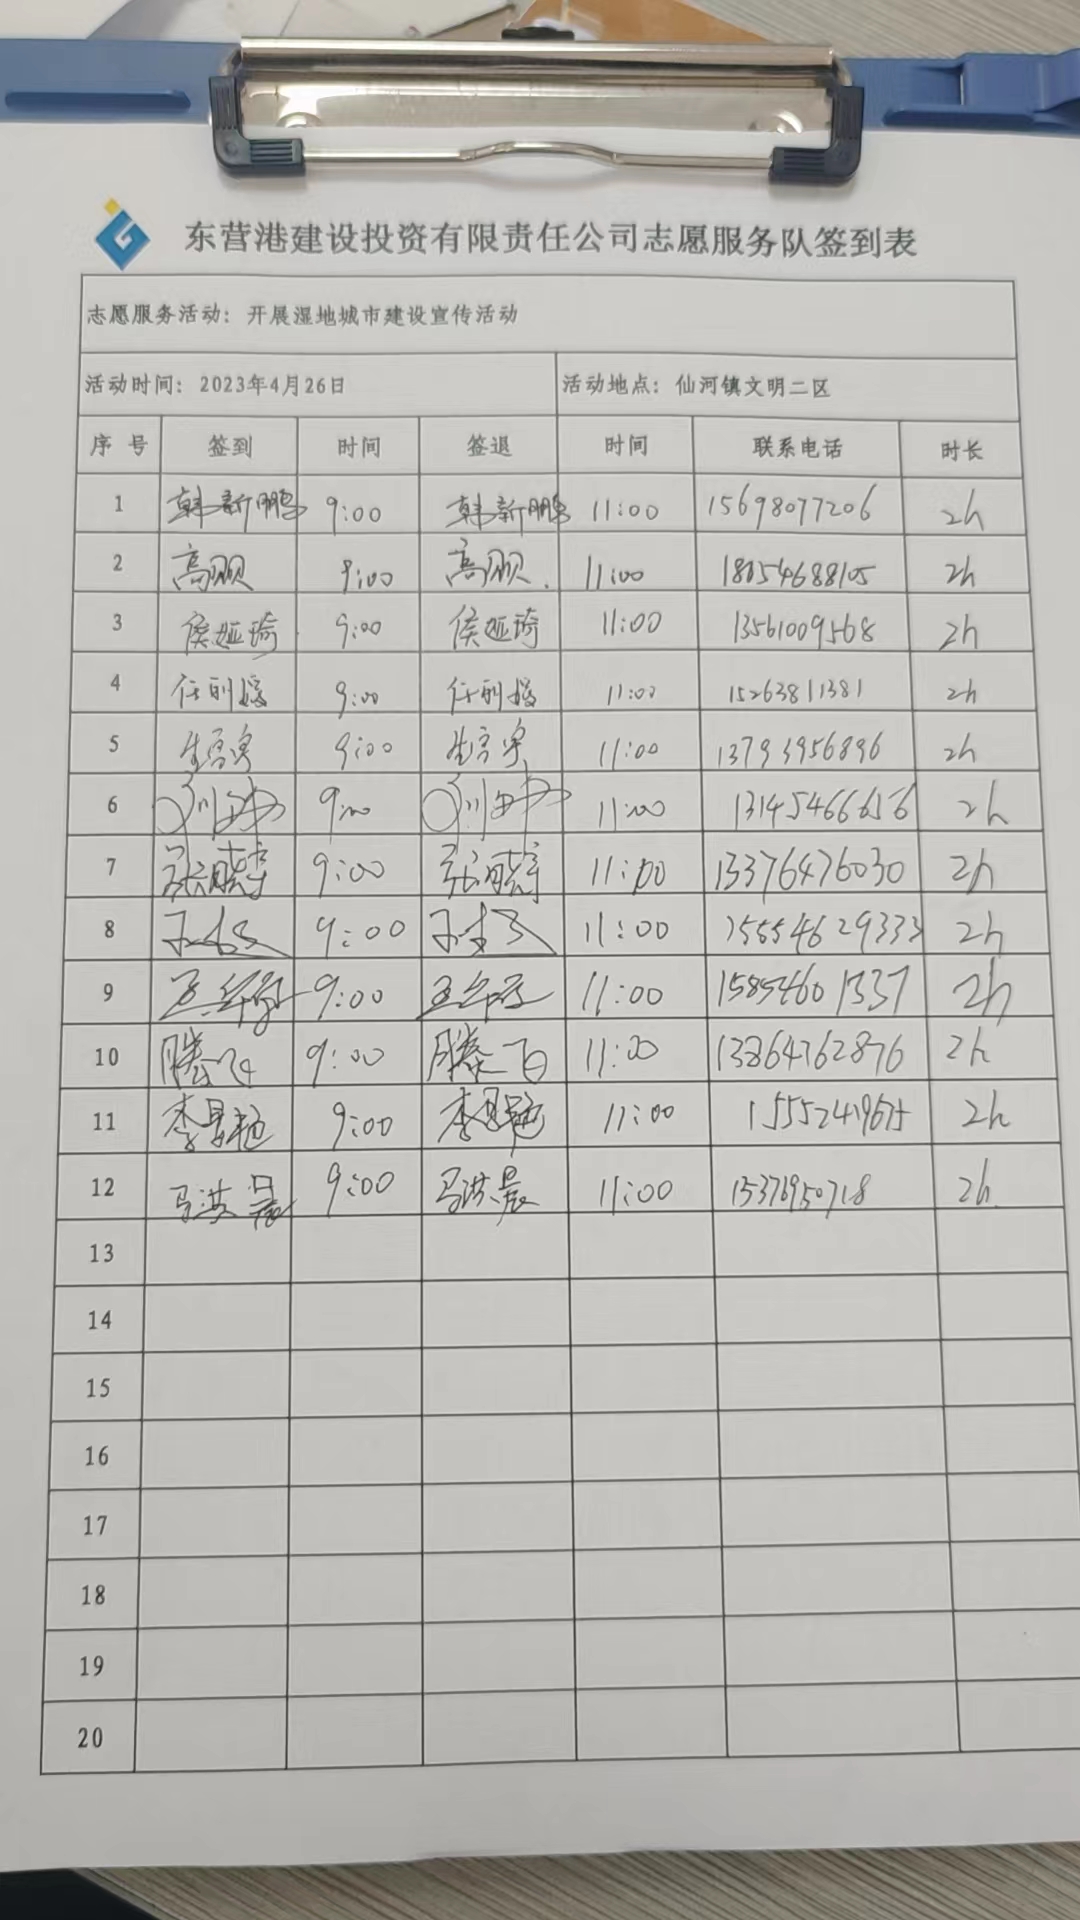 东营港建设投资有限责任公司志愿服务队签到表
志愿服务活动：开展湿地城市建设宣传活动
活动时间：2023年4月26日 活动地点：仙河镇文明二区
序号 签到 时间 签退 时间 联系电话 时长
1 韩新鹏 9:00 韩新鹏 11:00 15698077206 2h
2 高 9:00 高 11:00 18054688105 2h
3 侯娅琦 9:00 侯娅琦 11:00 13561009568 2h
4 任 9:00 任 11:00 15263811381 2h
5 9:00 11:00 13793956896 2h
6 9:00 11:00 13145466656 2h
7 张晓宇 9:00 张晓宇 11:00 13376476030 2h
8 9:00 11:00 15554629333 2h
9 9:00 11:00 15854601337 2h
10 滕飞 9:00 滕飞 11:00 13864762876 2h
11 李 9:00 李 11:00 15552419675 2h
12 马洪晨 9:00 马洪晨 11:00 15376950718 2h
13
14
15
16
17
18
19
20